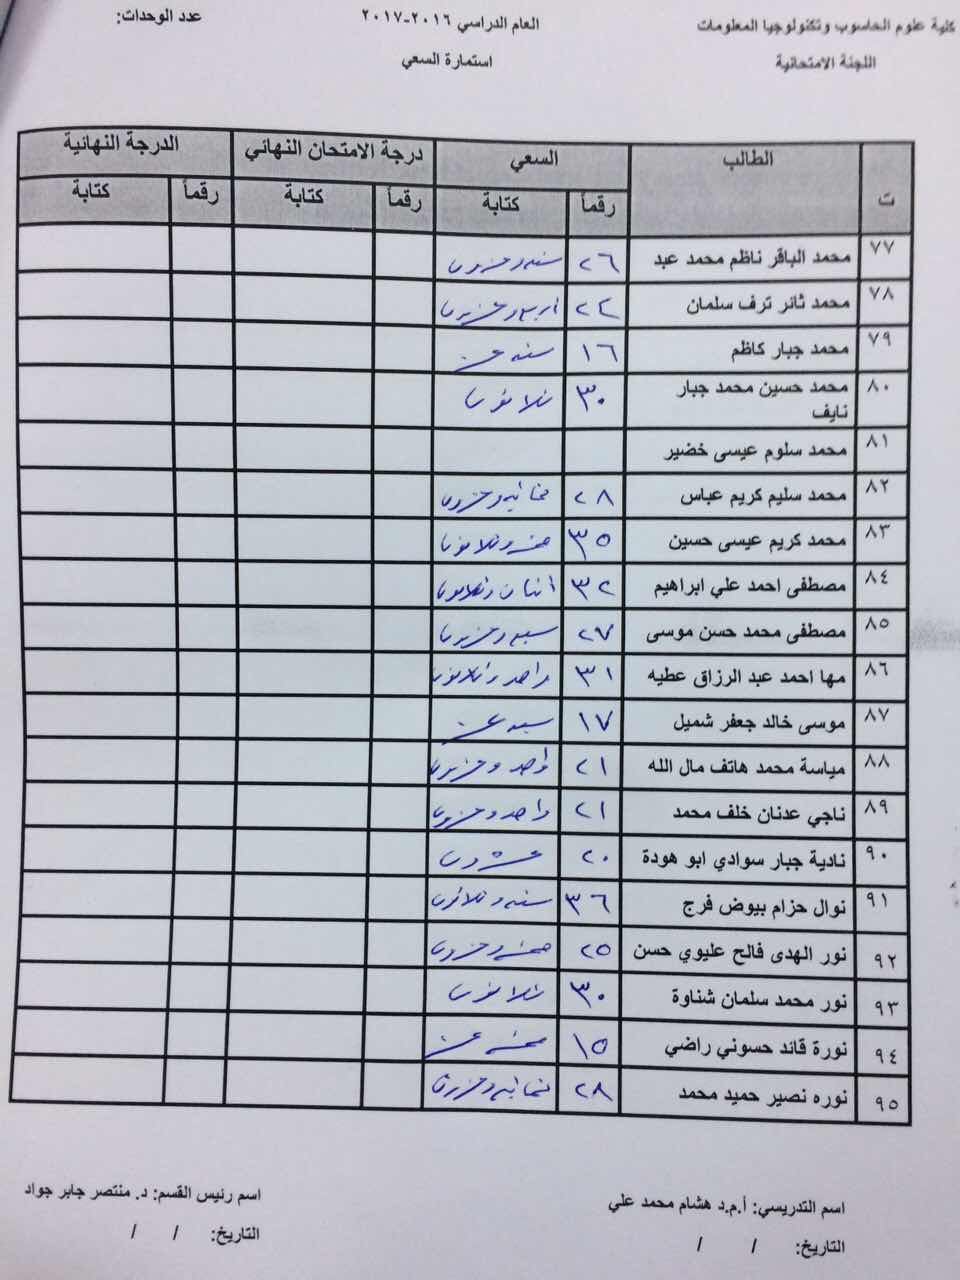 كلية علوم الحاسوب وتكنولوجيا المعلومات
العام الدراسي ٢٠١٦-٢٠١٧
عدد الوحدات:
اللجنة الامتحانية
استمارة السعي
ت الطالب السعي درجة الامتحان النهائي الدرجة النهائية
رقماً كتابة رقماً كتابة رقماً كتابة
٧٧ محمد الباقر ناظم محمد عبد ٢٦ ستة وعشرون
٧٨ محمد ثائر ترف سلمان ٢٤ اربعة وعشرون
٧٩ محمد جبار كاظم ١٦ ستة عشر
٨٠ محمد حسين محمد جبار ٣٠ ثلاثون
نايف
٨١ محمد سلوم عيسى خضير
٨٢ محمد سليم كريم عباس ٢٨ ثمانية وعشرون
٨٣ محمد كريم عيسى حسين ٣٥ خمسة وثلاثون
٨٤ مصطفى احمد علي ابراهيم ٣٢ اثنان وثلاثون
٨٥ مصطفى محمد حسن موسى ٢٧ سبعة وعشرون
٨٦ مها احمد عبد الرزاق عطيه ٣١ واحد وثلاثون
٨٧ موسى خالد جعفر شميل ١٧ سبعة عشر
٨٨ مياسة محمد هاتف مال الله ٢١ واحد وعشرون
٨٩ ناجي عدنان خلف محمد ٢١ واحد وعشرون
٩٠ نادية جبار سوادي ابو هودة ٢٠ عشرون
٩١ نوال حزام بيوض فرج ٣٦ ستة وثلاثون
٩٢ نور الهدى فالح عليوي حسن ٢٥ خمسة وعشرون
٩٣ نور محمد سلمان شناوة ٣٠ ثلاثون
٩٤ نورة قائد حسوني راضي ١٥ خمسة عشر
٩٥ نوره نصير حميد محمد ٢٨ ثمانية وعشرون
اسم التدريسي: أ.م.د هشام محمد علي
اسم رئيس القسم: د. منتصر جابر جواد
التاريخ: / /
التاريخ: / /